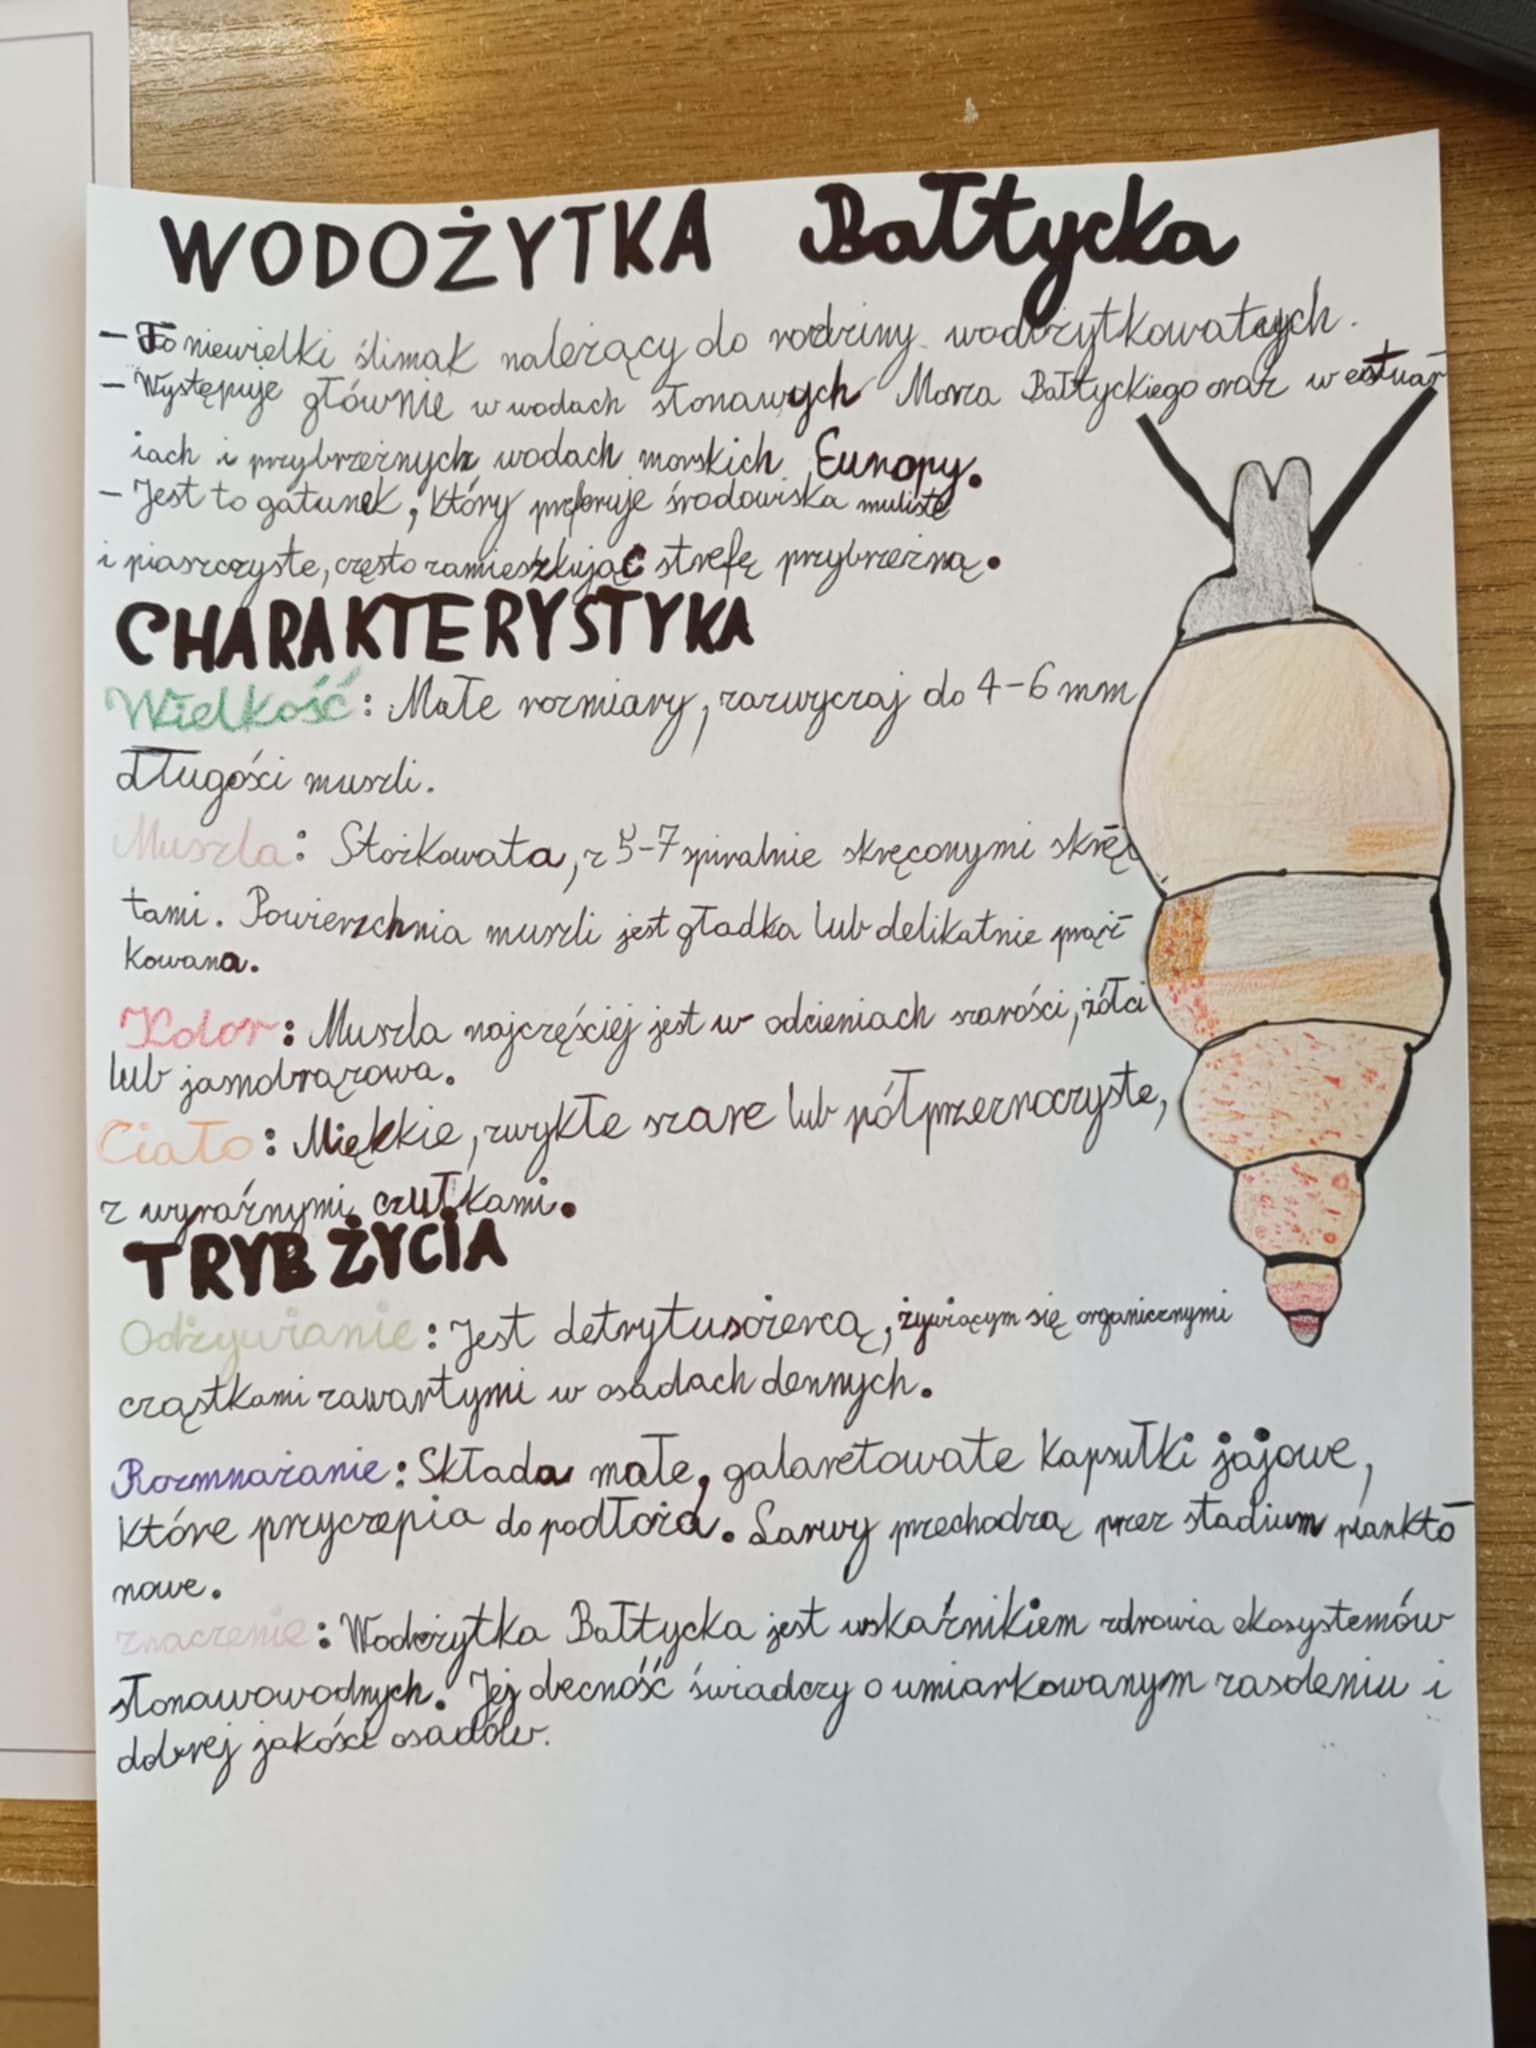 WODOŻYTKA Bałtycka
- To niewielki ślimak należący do rodziny wodożytkowatych.
- Występuje głównie w wodach słonawych Morza Bałtyckiego oraz w estuar-
iach i przybrzeżnych wodach morskich Europy.
- Jest to gatunek, który preferuje środowiska muliste
i piaszczyste, często zamieszkując strefę przybrzeżną.
CHARAKTERYSTYKA
Wielkość: Małe rozmiary, zazwyczaj do 4-6 mm
długości muszli.
Muszla: Stożkowata, z 5-7 spiralnie skręconymi skrę-
tami. Powierzchnia muszli jest gładka lub delikatnie prąż-
kowana.
Kolor: Muszla najczęściej jest w odcieniach szarości, żółci
lub jasnobrązowa.
Ciało: Miękkie, zwykle szare lub półprzezroczyste,
z wyraźnymi czułkami.
TRYB ŻYCIA
Odżywianie: Jest detrytusożercą, żywiącym się organicznymi
cząstkami zawartymi w osadach dennych.
Rozmnażanie: Składa małe, galaretowate kapsułki jajowe,
które przyczepia do podłoża. Larwy przechodzą przez stadium plankto-
nowe.
Znaczenie: Wodożytka Bałtycka jest wskaźnikiem zdrowia ekosystemów
słonawowodnych. Jej obecność świadczy o umiarkowanym zasoleniu i
dobrej jakości osadów.